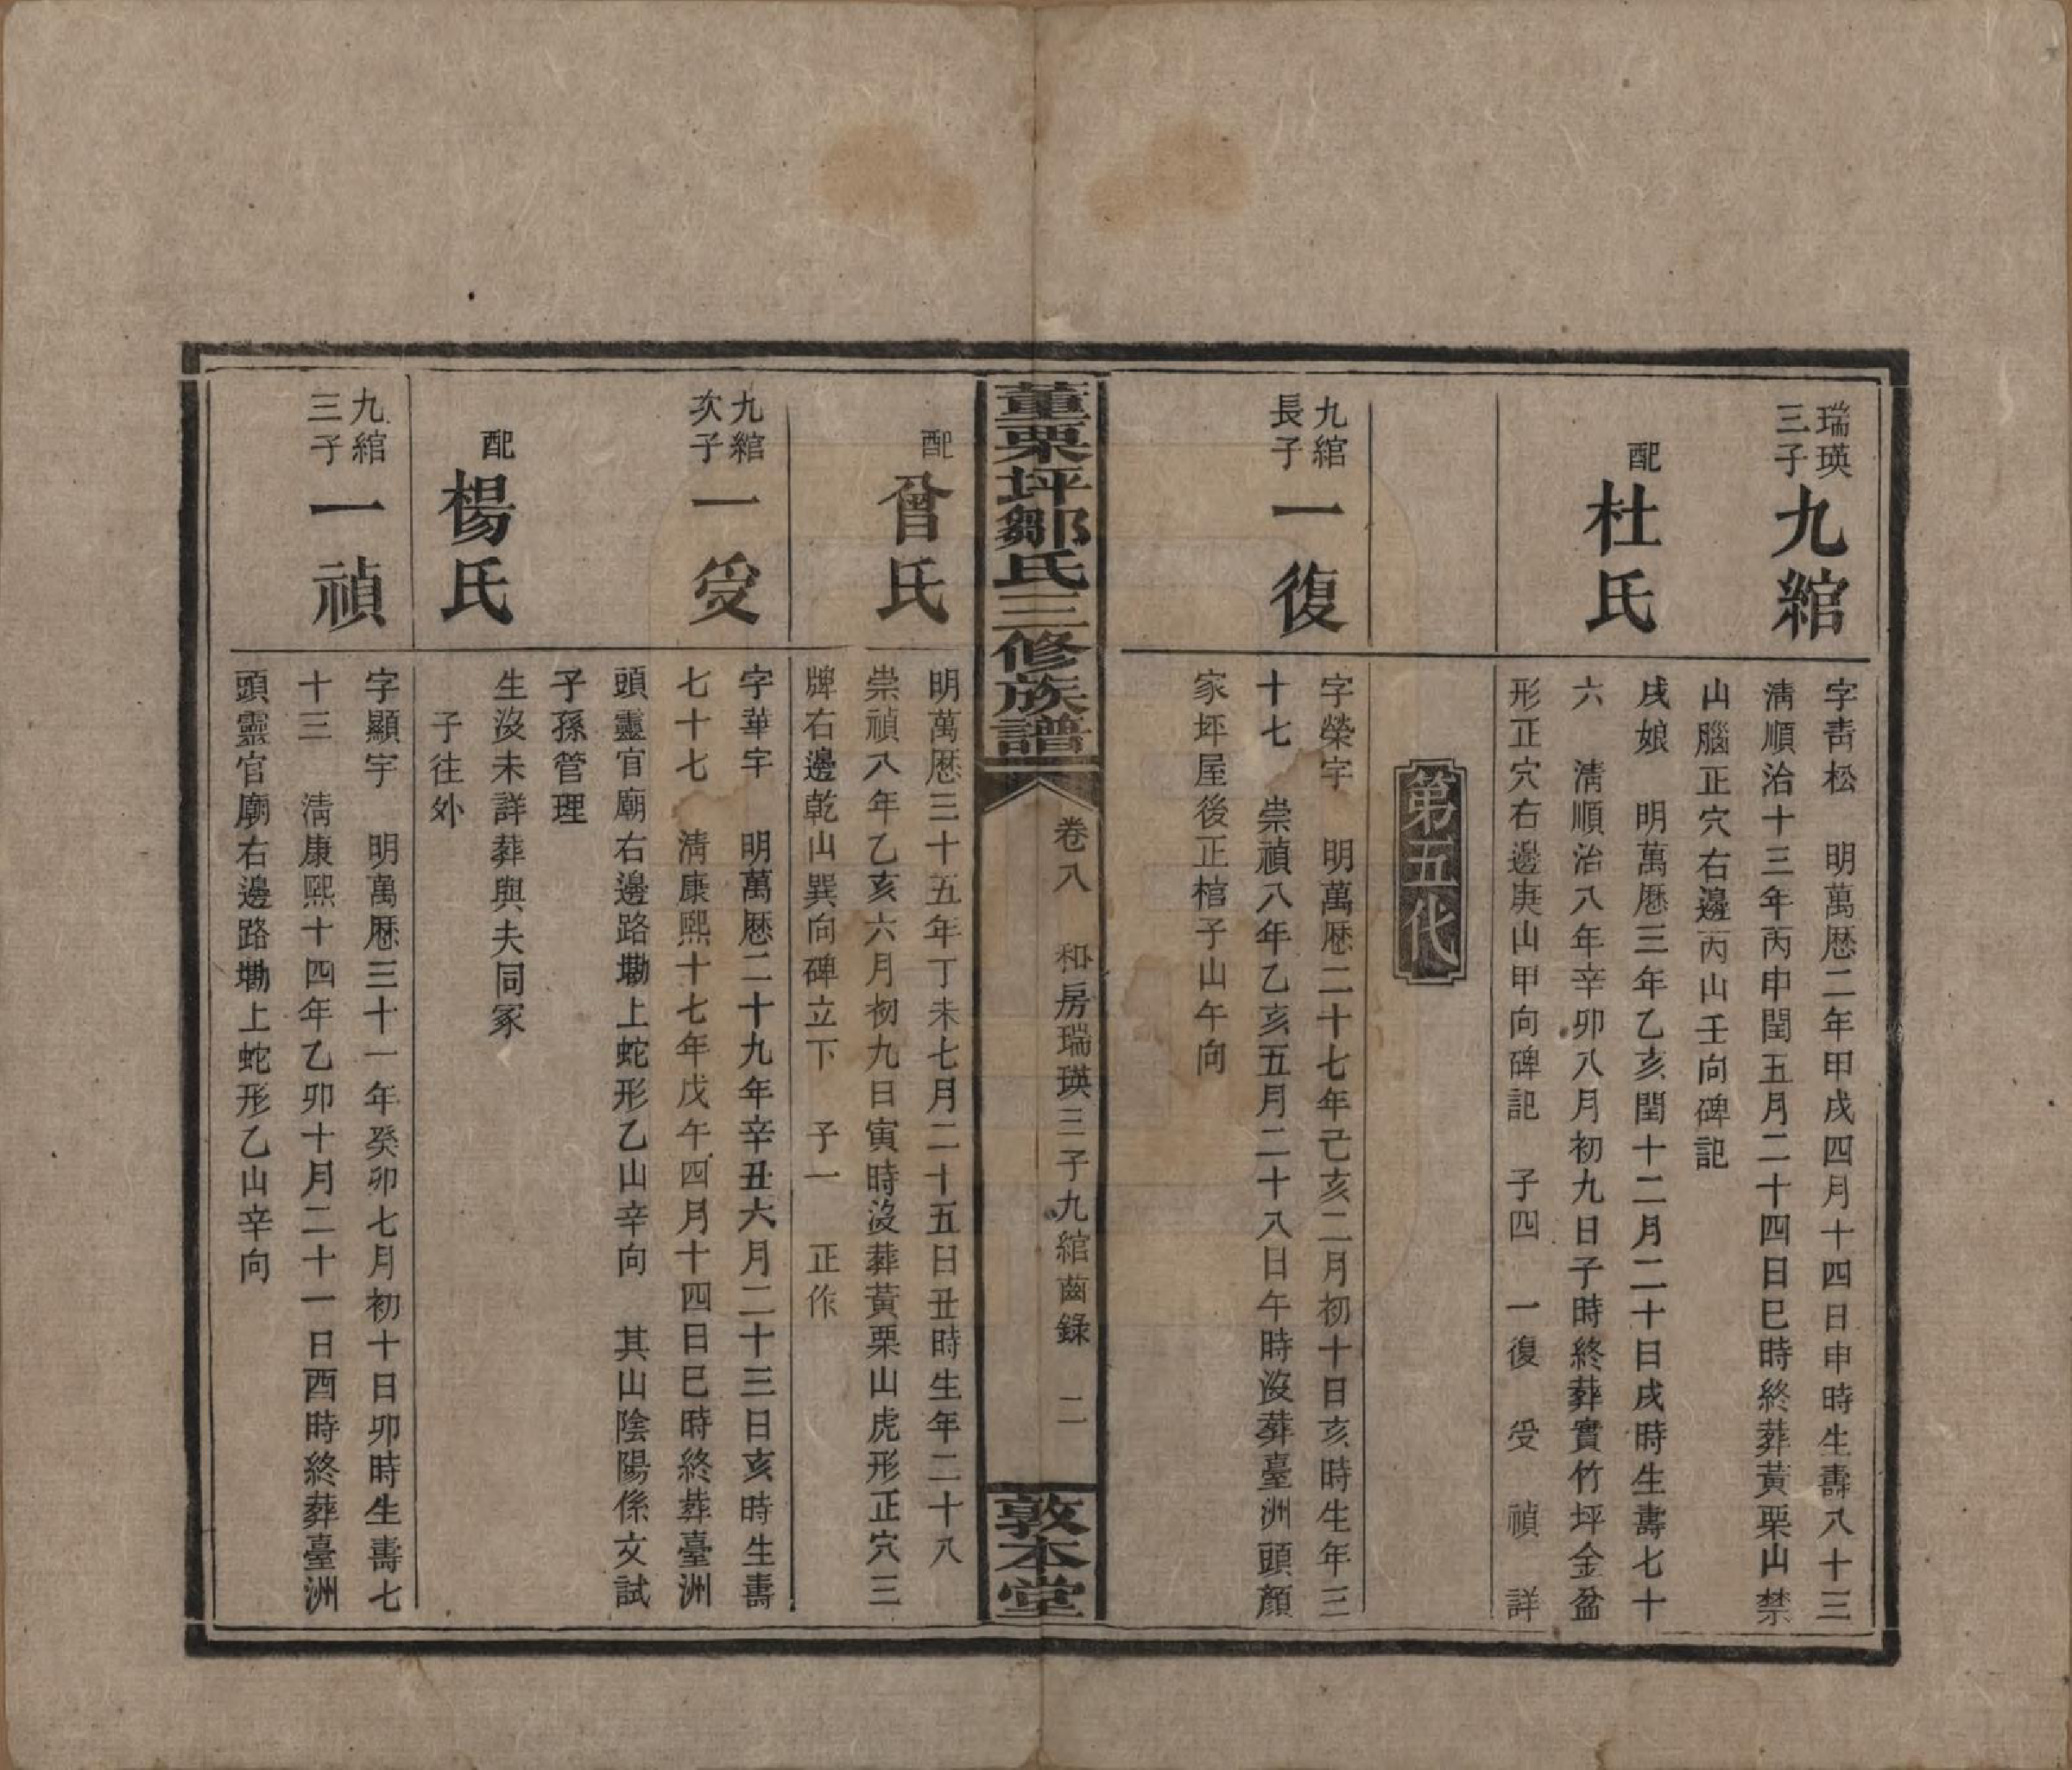 瑞瑛
三子
九綰
字青松　明萬厯二年甲戌四月十四日申時生壽八十三
淸順治十三年丙申閏五月二十四日巳時終葬黃栗山禁
山腦正穴右邊丙山壬向碑記
配
杜氏
戌娘　明萬厯三年乙亥閏十二月二十日戌時生壽七十
六　淸順治八年辛卯八月初九日子時終葬實竹坪金盆
形正穴右邊庚山甲向碑記　子四　一復　受　禎　詳
第五代
九綰
長子
一復
字榮宇　明萬厯二十七年己亥二月初十日亥時生年三
十七　崇禎八年乙亥五月二十八日午時沒葬臺洲頭顏
家坪屋後正棺子山午向
栗坪鄒氏三修族譜
卷八　和房瑞瑛三子九綰齒錄　二
敦本堂
配
曾氏
明萬厯三十五年丁未七月二十五日丑時生年二十八
崇禎八年乙亥六月初九日寅時沒葬黃栗山虎形正穴三
牌右邊乾山巽向碑立下　子一　正作
九綰
次子
一受
字華宇　明萬厯二十九年辛丑六月二十三日亥時生壽
七十七　淸康熙十七年戊午四月十四日巳時終葬臺洲
頭靈官廟右邊路墈上蛇形乙山辛向　其山陰陽係文試
子孫管理
配
楊氏
生沒未詳葬與夫同冢
子往外
九綰
三子
一禎
字顯宇　明萬厯三十一年癸卯七月初十日卯時生壽七
十三　淸康熙十四年乙卯十月二十一日酉時終葬臺洲
頭靈官廟右邊路墈上蛇形乙山辛向